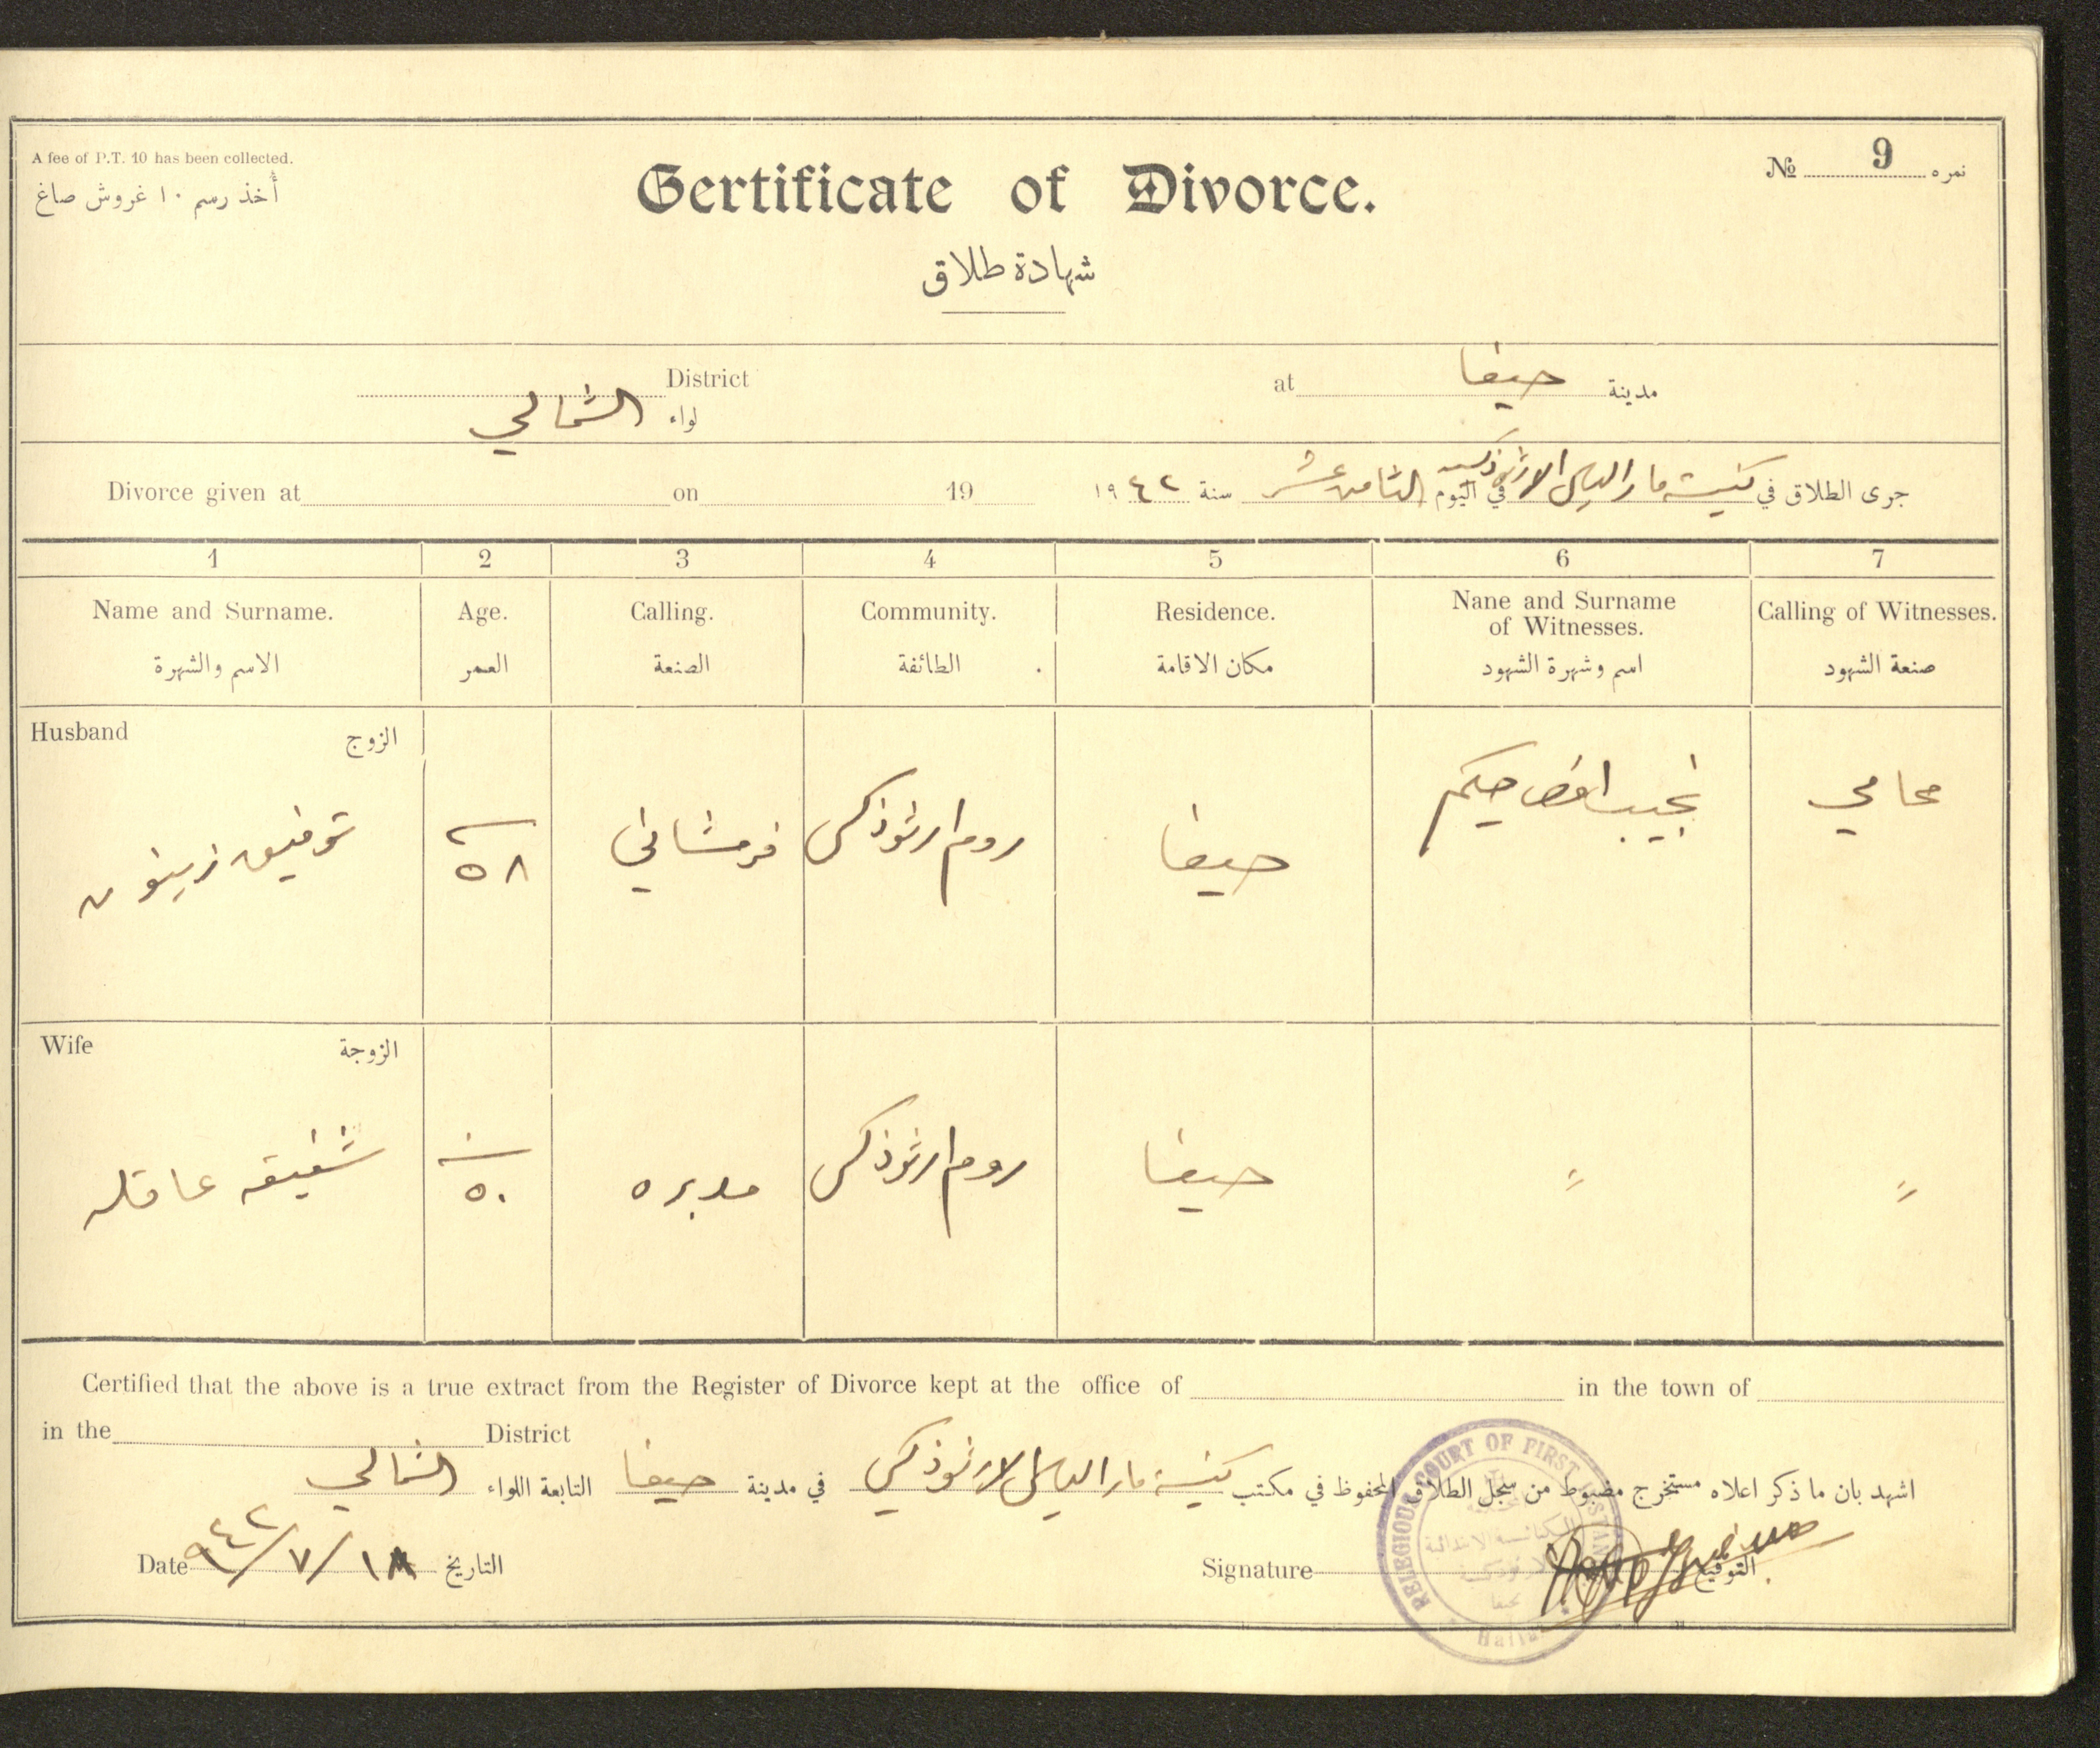 A fee of P.T. 10 has been collected.
أُخذ رسم ١٠ غروش صاغ
№ 9 نمره
Certificate of Divorce.
شهادة طلاق
District
لواء الشمالي
at حيفا مدينة
Divorce given at on 19
جرى الطلاق في كنيسة مار الياس الارثوذكسيه في اليوم الثامن عشر سنة ١٩٤٢
1 2 3 4 5 6 7
Name and Surname. Age. Calling. Community. Residence. Nane and Surname of Witnesses. Calling of Witnesses.
الاسم والشهرة العمر الصنعة الطائفة مكان الاقامة اسم وشهرة الشهود صنعة الشهود
Husband الزوج
توفيق زيتون ٥٨ فرمشاني روم ارثوذكس حيفا نجيب حكيم محامي
Wife الزوجة
شفيقه عاقله سنة ٥٠ مدبره روم ارثوذكس حيفا " "
Certified that the above is a true extract from the Register of Divorce kept at the office of in the town of
in the District
اشهد بان ما ذكر اعلاه مستخرج مضبوط من سجل الطلاق المحفوظ في مكتب كنيسة مار الياس الارثوذكسي في مدينة حيفا التابعة اللواء الشمالي
Date ١٨/٧/٩٤٢ التاريخ
Signature التوقيع
RELIGIOUS COURT OF FIRST INSTAN
الكنائسية الابتدائية
الارثوذكسية
بحيفا
Haifa